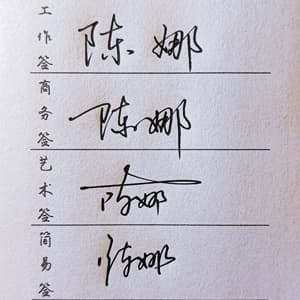 工作签 陈娜
商务签 陈娜
艺术签 陈娜
简易签 陈娜